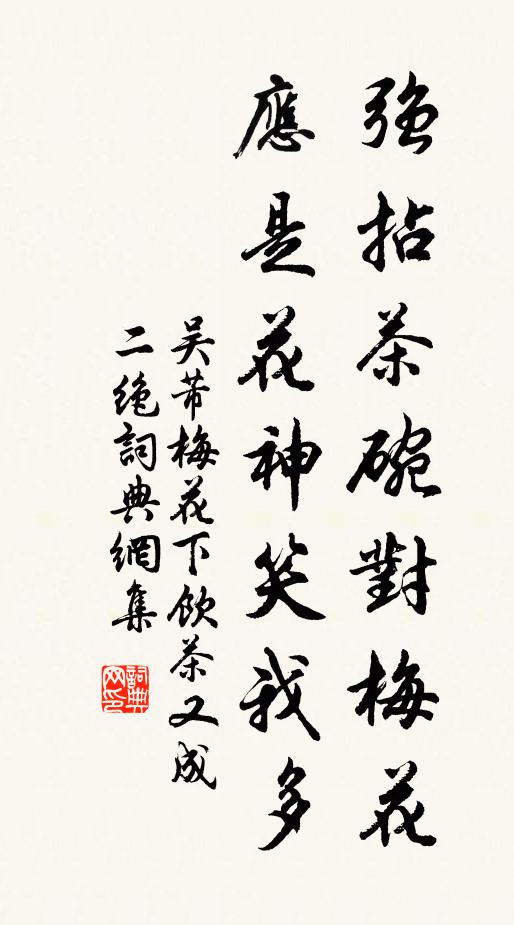 強拈茶碗對梅花
應是花神笑我多
吳芾梅花下飲茶又成
二絕詞典網集
詞典
网印